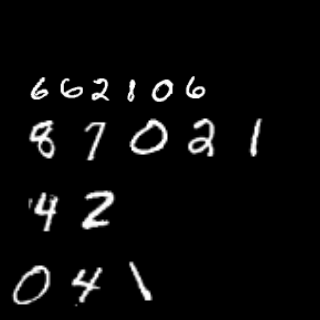 662106
87021
42
041